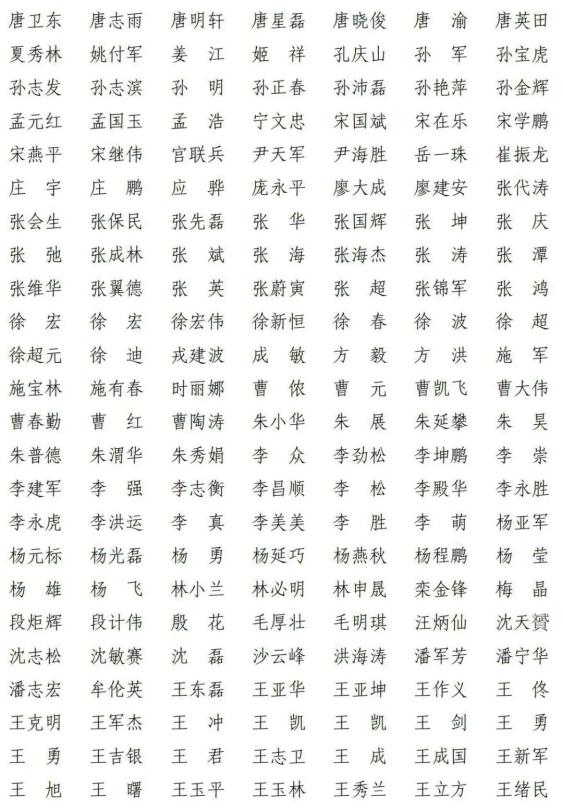 唐卫东 唐志雨 唐明轩 唐星磊 唐晓俊 唐 渝 唐英田
夏秀林 姚付军 姜 江 姬 祥 孔庆山 孙 军 孙宝虎
孙志发 孙志滨 孙 明 孙正春 孙沛磊 孙艳萍 孙金辉
孟元红 孟国玉 孟 浩 宁文忠 宋国斌 宋在乐 宋学鹏
宋燕平 宋继伟 官联兵 尹天军 尹海胜 岳一珠 崔振龙
庄 宇 庄 鹏 应 骅 庞永平 廖大成 廖建安 张代涛
张会生 张保民 张先磊 张 华 张国辉 张 坤 张 庆
张 弛 张成林 张 斌 张 海 张海杰 张 涛 张 潭
张维华 张翼德 张 英 张蔚寅 张 超 张锦军 张 鸿
徐 宏 徐 宏 徐宏伟 徐新恒 徐 春 徐 波 徐 超
徐超元 徐 迪 戎建波 成 敏 方 毅 方 洪 施 军
施宝林 施有春 时丽娜 曹 侬 曹 元 曹凯飞 曹大伟
曹春勤 曹 红 曹陶涛 朱小华 朱 展 朱延攀 朱 昊
朱普德 朱渭华 朱秀娟 李 众 李劲松 李坤鹏 李 崇
李建军 李 强 李志衡 李昌顺 李 松 李殿华 李永胜
李永虎 李洪运 李 真 李美美 李 胜 李 萌 杨亚军
杨元标 杨光磊 杨 勇 杨延巧 杨燕秋 杨程鹏 杨 莹
杨 雄 杨 飞 林小兰 林必明 林申晟 栾金锋 梅 晶
段炬辉 段计伟 殷 花 毛厚壮 毛明琪 汪炳仙 沈天赟
沈志松 沈敏赛 沈 磊 沙云峰 洪海涛 潘军芳 潘宁华
潘志宏 牟伦英 王东磊 王亚华 王亚坤 王作义 王 佟
王克明 王军杰 王 冲 王 凯 王 凯 王 剑 王 勇
王 勇 王吉银 王 君 王志卫 王 成 王成国 王新军
王 旭 王 曙 王玉平 王玉林 王秀兰 王立方 王绪民